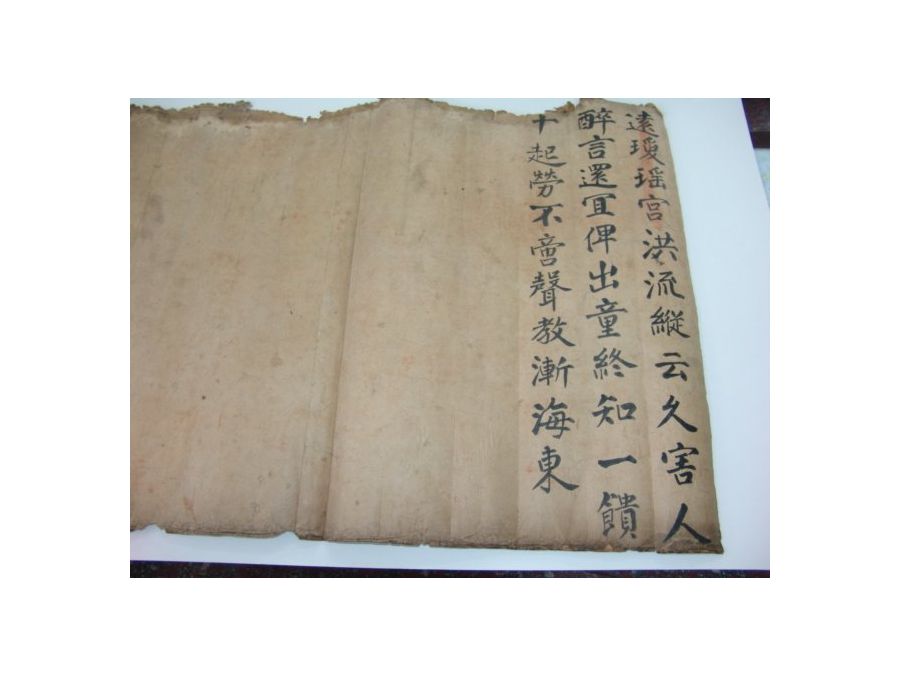 遠瓊瑶宮洪流縱云久害人
醉言還冝俾出童終知一饋
十起勞不啻聲教漸海東